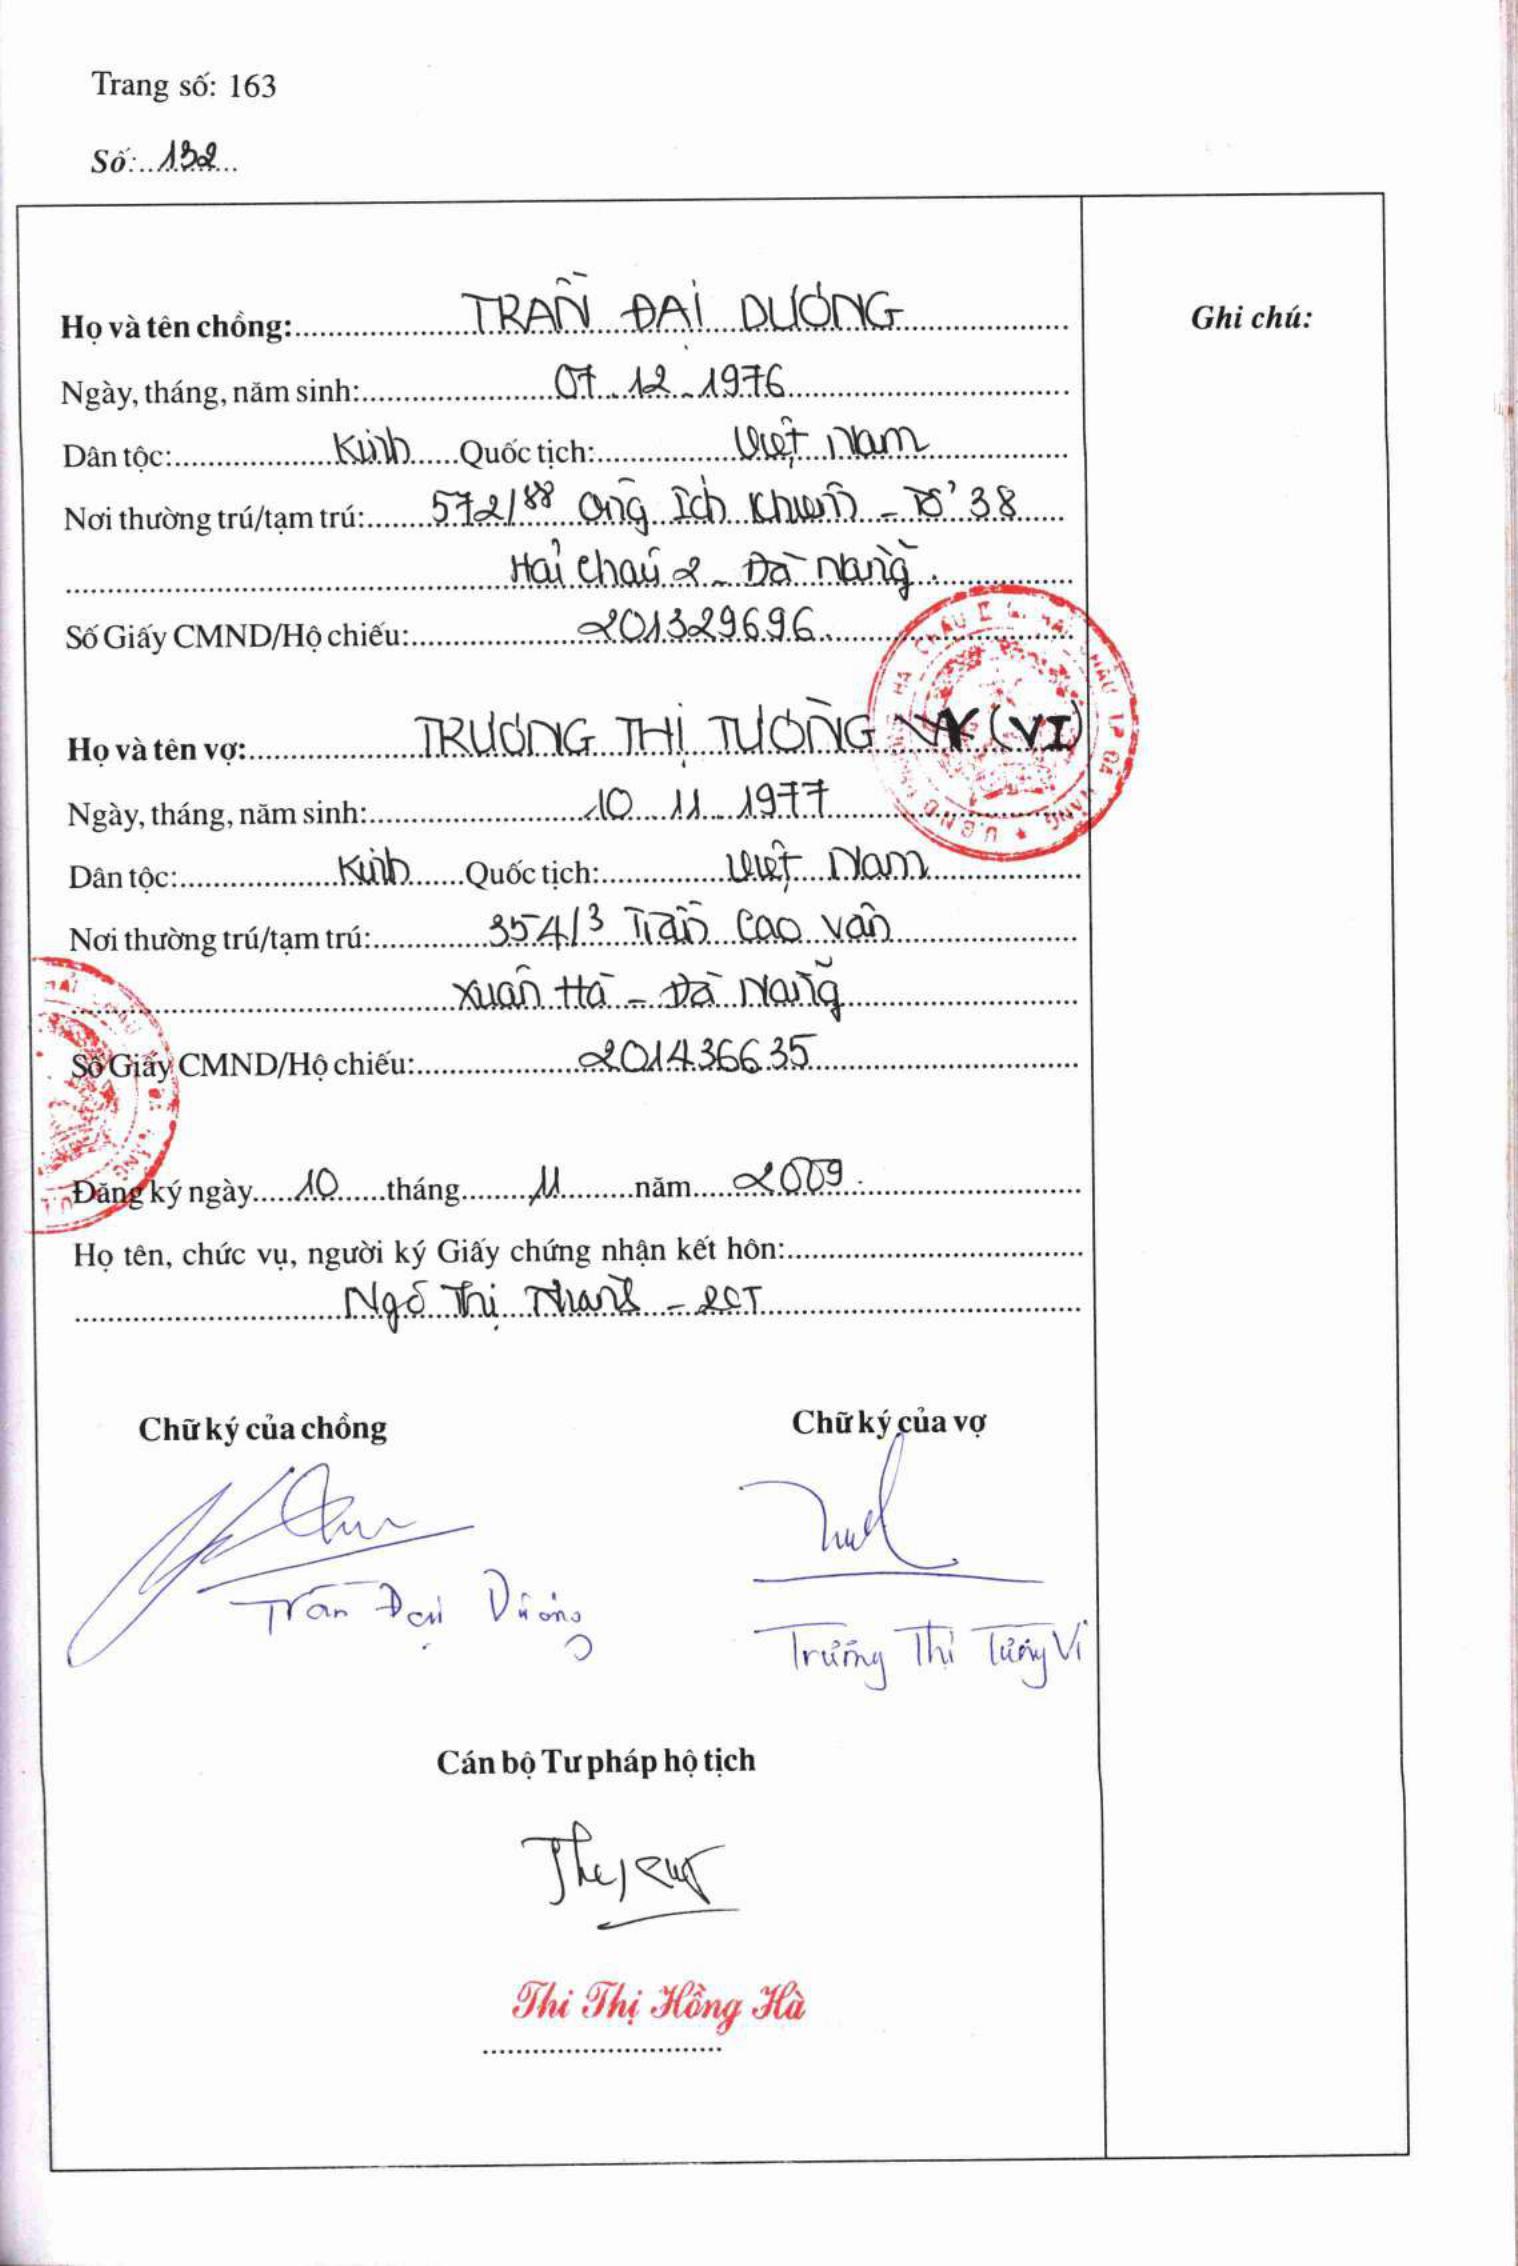 Trang số: 163
Số: 132
Họ và tên chồng: TRẦN ĐẠI DƯƠNG
Ghi chú:
Ngày, tháng, năm sinh: 07.12.1976
Dân tộc: Kinh Quốc tịch: Việt Nam
Nơi thường trú/tạm trú: 572/88 Ông Ích Khiêm - Tổ 38
Hải Châu 2 - Đà Nẵng.
Số Giấy CMND/Hộ chiếu: 201329696
Họ và tên vợ: TRƯƠNG THỊ TƯỜNG (VI)
Ngày, tháng, năm sinh: 10.11.1977
Dân tộc: Kinh Quốc tịch: Việt Nam
Nơi thường trú/tạm trú: 354/3 Trần Cao Vân
Xuân Hà - Đà Nẵng
Số Giấy CMND/Hộ chiếu: 201436635
Đăng ký ngày 10 tháng 11 năm 2009.
Họ tên, chức vụ, người ký Giấy chứng nhận kết hôn:
Ngô Thị - PCT
Chữ ký của chồng
Chữ ký của vợ
Trần Đại Dương
Trương Thị Tường Vi
Cán bộ Tư pháp hộ tịch
Thi Thị Hồng Hà